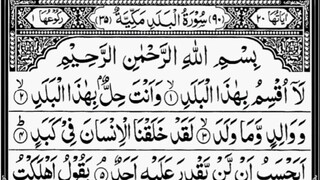 اٰیاتها ٢٠ (٩٠) سُوْرَةُ الْبَلَدِ مَكِّيَّةٌ (٣٥) رکوعها ١
بِسْمِ اللّٰهِ الرَّحْمٰنِ الرَّحِيْمِ
لَاۤ اُقْسِمُ بِهٰذَا الْبَلَدِ ۙ﴿١﴾ وَاَنْتَ حِلٌّۢ بِهٰذَا الْبَلَدِ ۙ﴿٢﴾
وَوَالِدٍ وَّمَا وَلَدَ ۙ﴿٣﴾ لَقَدْ خَلَقْنَا الْاِنْسَانَ فِيْ كَبَدٍ ؕ﴿٤﴾
اَيَحْسَبُ اَنْ لَّنْ يَّقْدِرَ عَلَيْهِ اَحَدٌ ۘ﴿٥﴾ يَقُوْلُ اَهْلَكْتُ